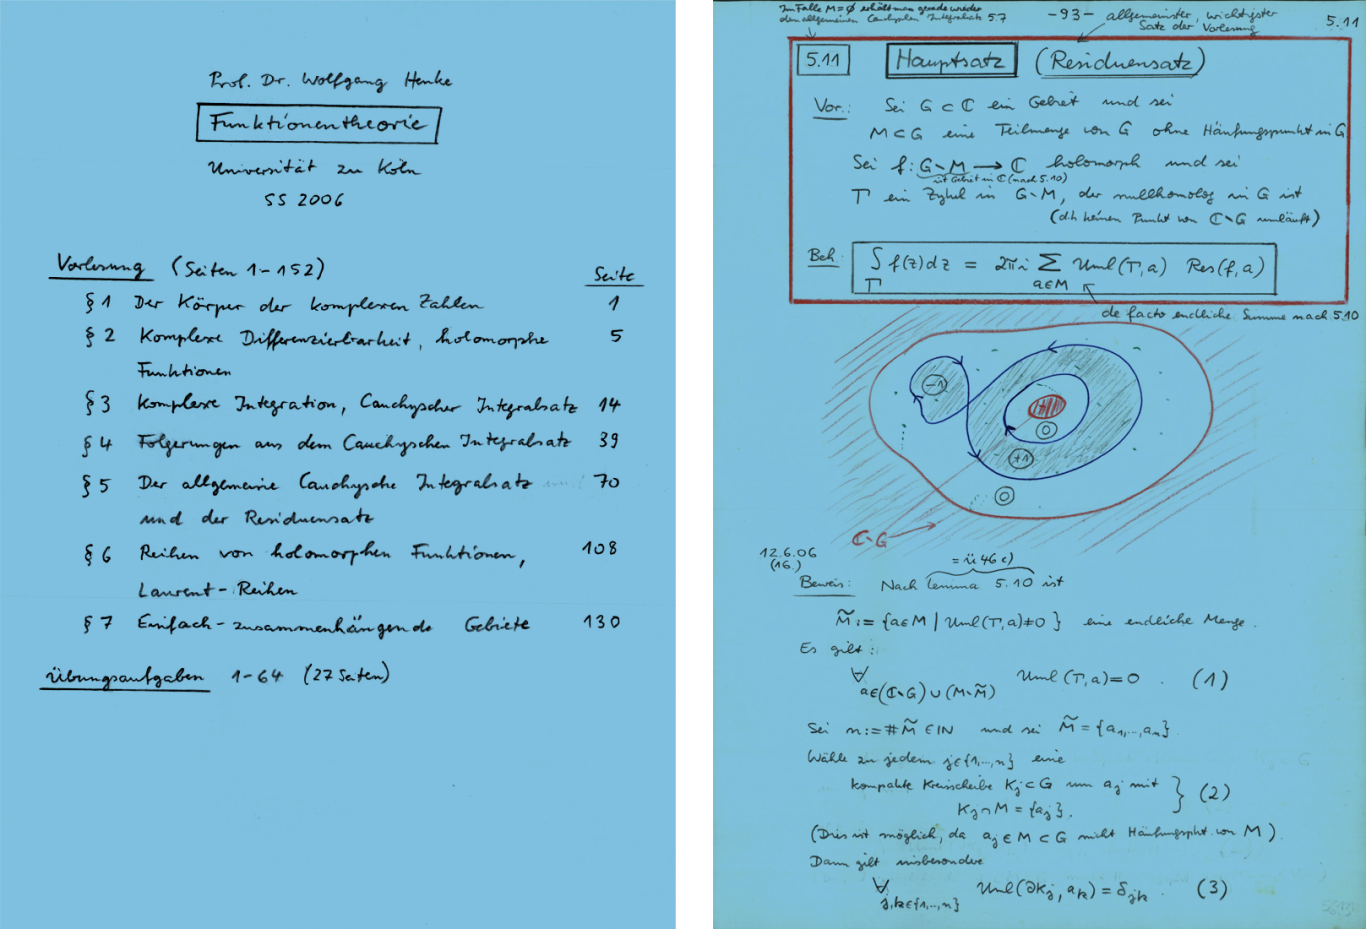 Prof. Dr. Wolfgang Henke
Funktionentheorie
Universität zu Köln
SS 2006
Vorlesung (Seiten 1-152) Seite
§ 1 Der Körper der komplexen Zahlen 1
§ 2 Komplexe Differenzierbarkeit, holomorphe 5
Funktionen
§ 3 Komplexe Integration, Cauchyscher Integralsatz 14
§ 4 Folgerungen aus dem Cauchyschen Integralsatz 39
§ 5 Der allgemeine Cauchysche Integralsatz 70
und der Residuensatz
§ 6 Reihen von holomorphen Funktionen, 108
Laurent-Reihen
§ 7 Einfach-zusammenhängende Gebiete 130
Übungsaufgaben 1-64 (27 Seiten)
Im Falle M = ∅ erhält man gerade wieder
den allgemeinen Cauchyschen Integralsatz 5.7
-93-
allgemeinster, wichtigster
Satz der Vorlesung
5.11
5.11 Hauptsatz (Residuensatz)
Vor.: Sei G ⊂ ℂ ein Gebiet und sei
M ⊂ G eine Teilmenge von G ohne Häufungspunkt in G
Sei f: G∖M → ℂ holomorph und sei
ist Gebiet in ℂ (nach 5.10)
Γ ein Zykel in G∖M, der nullhomolog in G ist
(d.h. keinen Punkt von ℂ∖G umläuft)
Beh.: ∫_Γ f(z)dz = 2πi ∑_{a∈M} Uml(Γ,a) Res(f,a)
de facto endliche Summe nach 5.10
-1
0
+1
0
ℂ∖G
12.6.06
(16.)
= ü 46 c)
Beweis: Nach Lemma 5.10 ist
M̃ := {a∈M | Uml(Γ,a)≠0} eine endliche Menge.
Es gilt:
∀_{a∈(ℂ∖G)∪(M∖M̃)} Uml(Γ,a)=0. (1)
Sei n:=#M̃ ∈ ℕ und sei M̃ = {a₁,...,aₙ}.
Wähle zu jedem j∈{1,...,n} eine
kompakte Kreisscheibe K_j ⊂ G um a_j mit
K_j ∩ M = {a_j}. } (2)
(Dies ist möglich, da a_j ∈ M ⊂ G nicht Häufungspkt. von M).
Dann gilt insbesondere
∀_{j,k∈{1,...,n}} Uml(∂K_j, a_k) = δ_jk. (3)